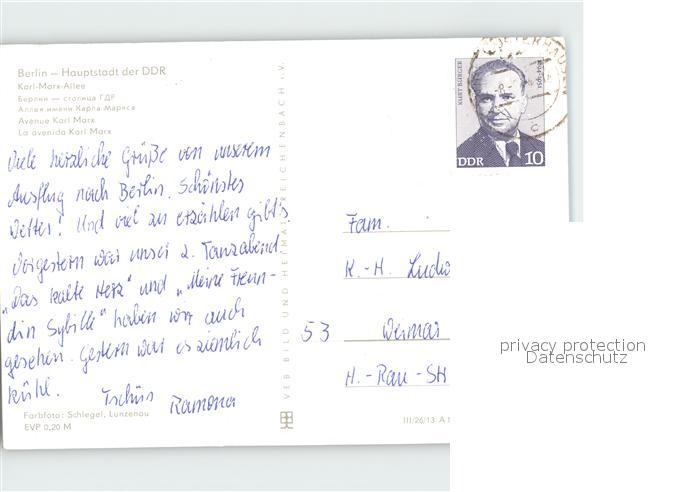 Berlin – Hauptstadt der DDR
Karl-Marx-Allee
Берлин — столица ГДР
Аллея имени Карла Маркса
Avenue Karl Marx
La avenida Karl Marx
Viele herzliche Grüße von unserem
Ausflug nach Berlin. Schönstes
Wetter! Und viel zu erzählen gibt's.
Vorgestern war unser 2. Tanzabend.
„Das kalte Herz" und „Meine Freun-
din Sybille" haben wir auch
gesehen. Gestern war es ziemlich
kühl. Tschüss
Ramona
Farbfoto: Schlegel, Lunzenau
EVP 0,20 M
VEB BILD UND HEIMAT REICHENBACH i. V.
III/26/13 A 1
KURT BÜRGER
1894–1951
DDR 10
Fam.
K.-H. Ludw
53 Weimar
H.-Rau-Str
privacy protection
Datenschutz